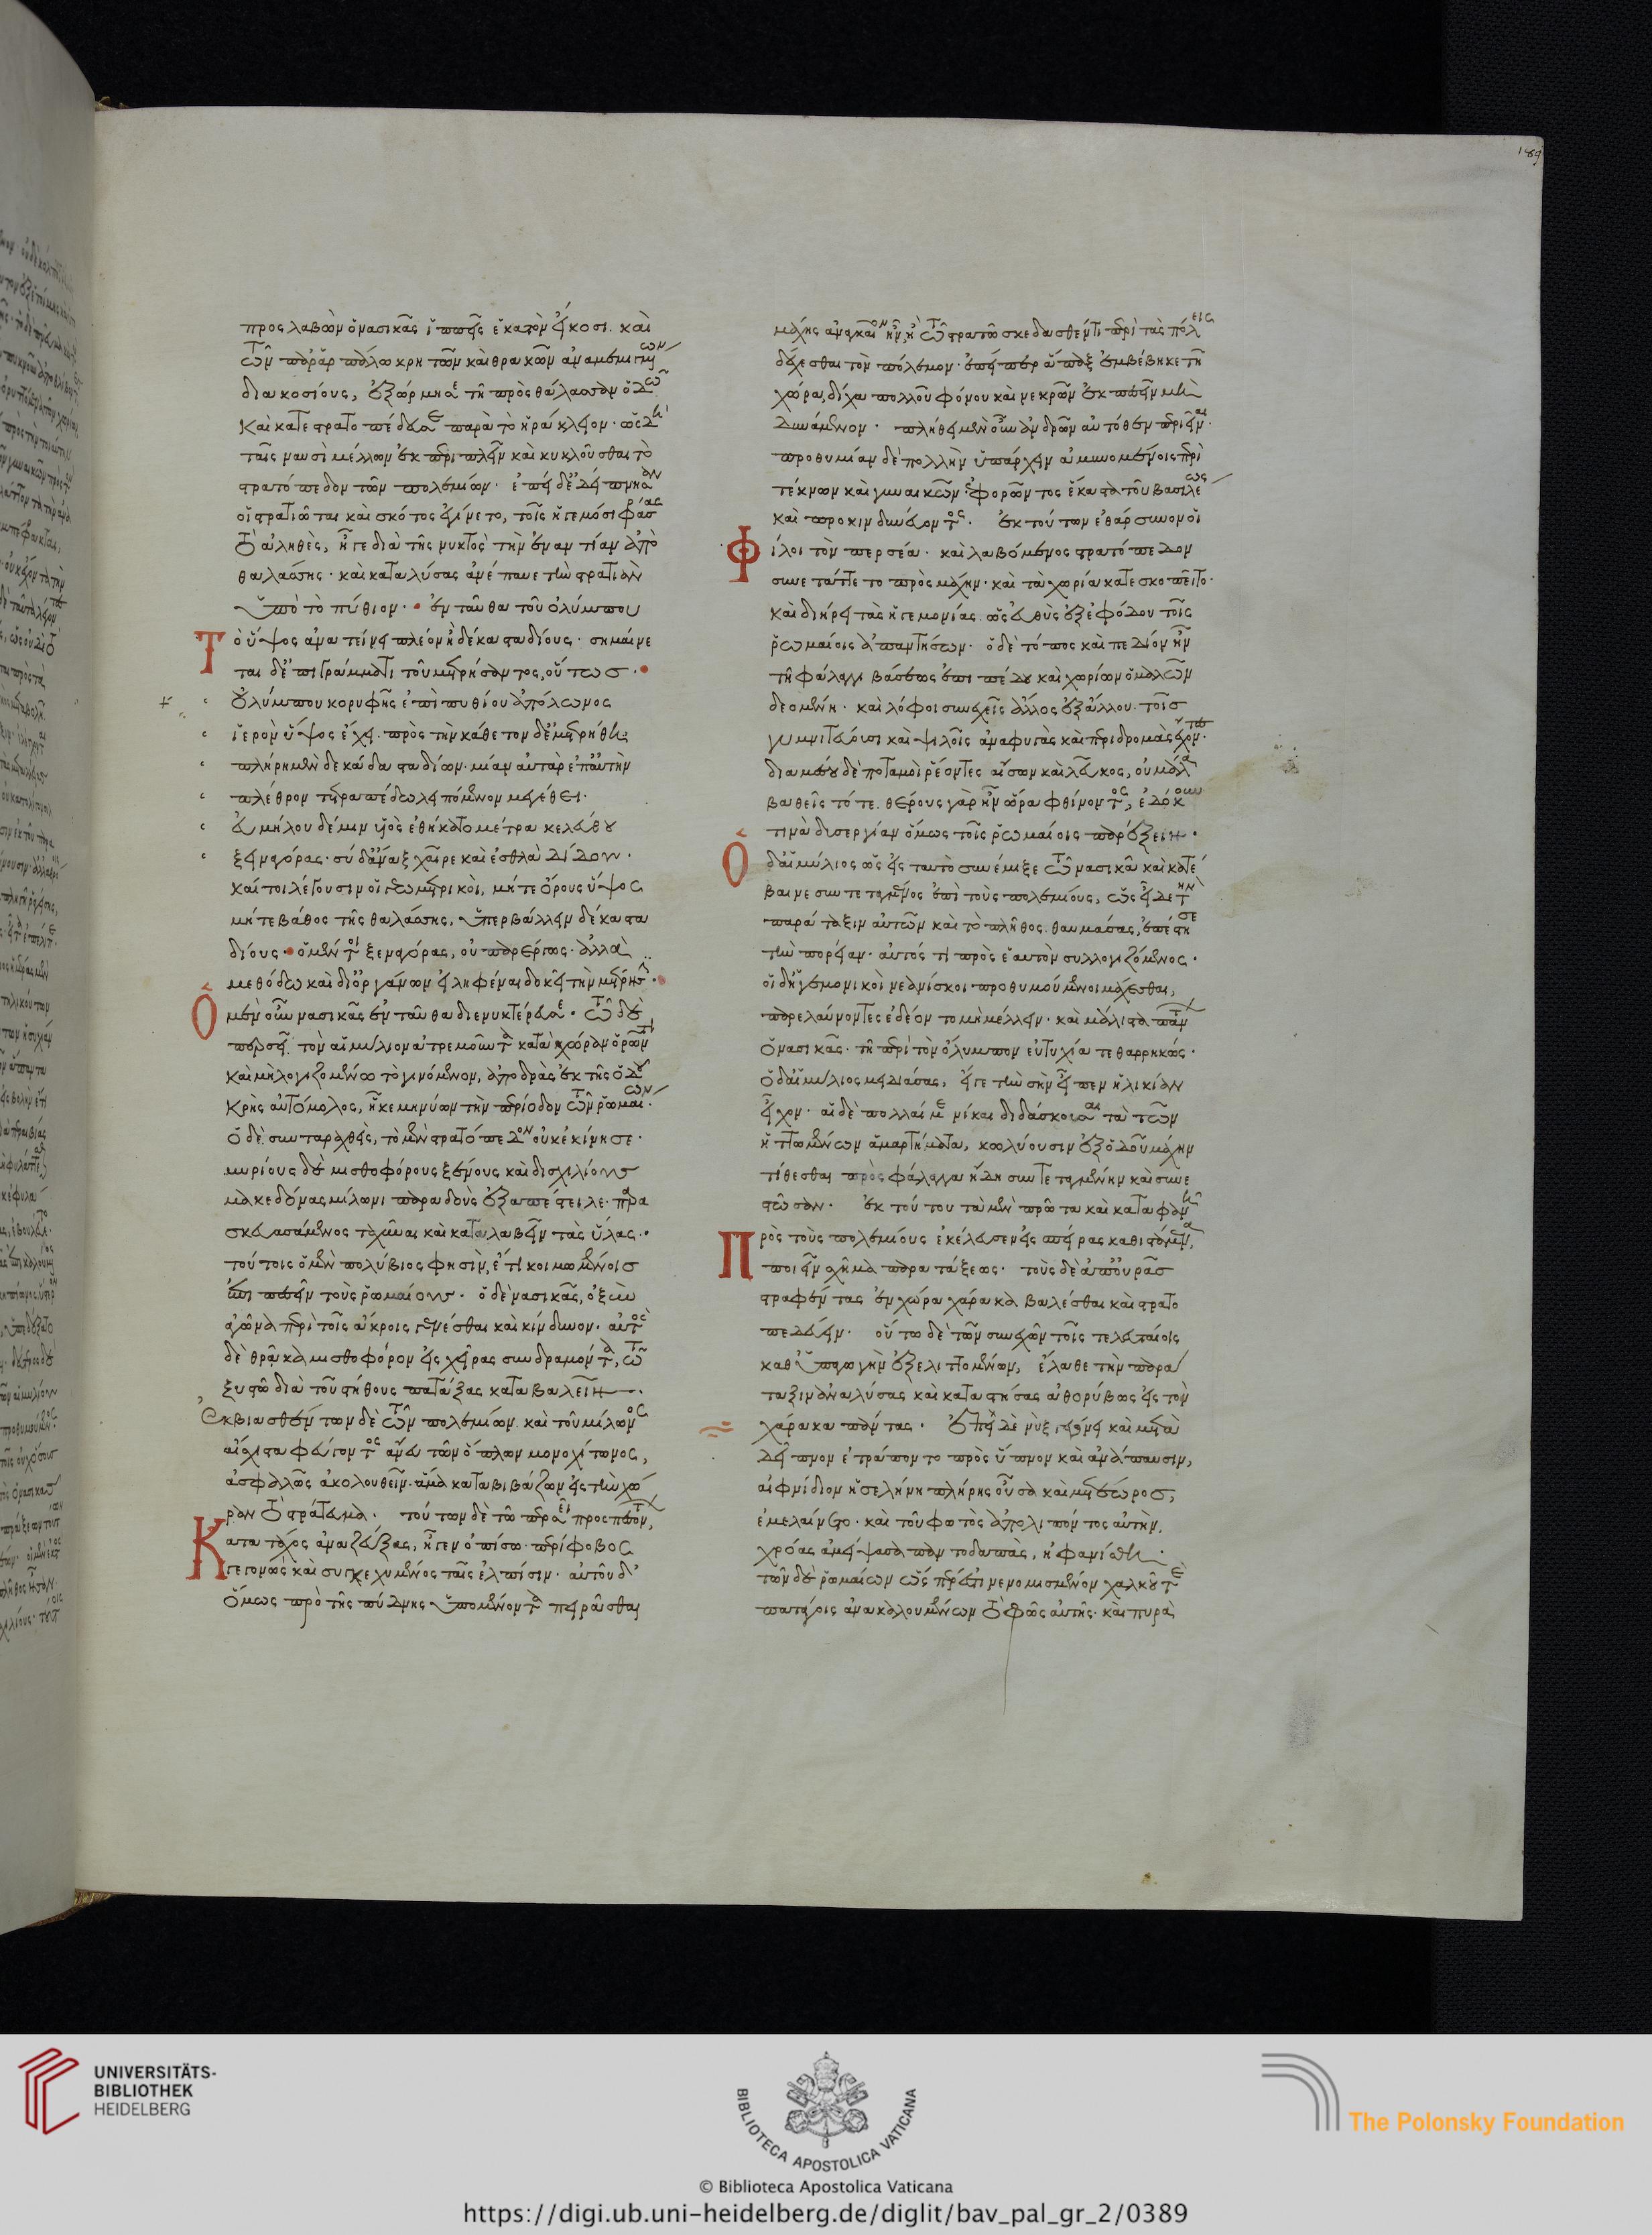 προσλαβὼν ὁ νασικᾶς ἱππεῖς ἑκατὸν εἴκοσι. καὶ
τῶν παρ' ἁρπάλω κρητῶν καὶ θρακῶν ἀναμεμιγμένων
διακοσίους, ἐξώρμησε τῆ πρὸς θάλασσαν ὁδῶ
καὶ κατεστρατοπέδευσε παρὰ τὸ ἡράκλειον· ὡς δὴ
ταῖς ναυσὶ μέλλων ἐκπεριπλεῖν καὶ κυκλοῦσθαι τὸ
στρατόπεδον τῶν πολεμίων. ἐπεὶ δ' ἐδείπνησαν
οἱ στρατιῶται καὶ σκότος ἐγίνετο, τοῖς ἡγεμόσι φράσας
τὸ ἀληθὲς, ἦγε διὰ τῆς νυκτὸς τὴν ἐναντίαν ἀπὸ
θαλάσσης· καὶ καταλύσας ἀνέπαυε τὴν στρατιὰν
ὑπὸ τὸ πύθιον. ἐνταῦθα τοῦ ὀλύμπου
τὸ ὕψος ἀνατείνει πλέον ἢ δέκα σταδίους· σημαίνε
ται δ' ἐπιγράμματι τοῦ μετρήσαντος, οὕτως·
οὐλύμπου κορυφῆς ἐπὶ πυθίου ἀπόλωνος
ἱερὸν ὕψος ἔχει. πρὸς τὴν κάθετον δ' ἐμετρήθη
πλήρη μὲν δεκάδα σταδίων. μίαν αὐτὰρ ἐπ' αὐτὴν
πλέθρον τετραπέδω λειπόμενον μεγέθει·
εὐμήλου δέ μιν υἱὸς ἐθήκατο μέτρα κελεύθου
ξεναγόρας· σὺ δ' ἄναξ χαῖρε καὶ ἐσθλὰ δίδου·
καί τοι λέγουσιν οἱ γεωμετρικοὶ, μήτε ὄρους ὕψος
μήτε βάθος τῆς θαλάσσης, ὑπερβάλλειν δέκα στα
δίους· ὁ μέντοι ξεναγόρας, οὐ παρέργως· ἀλλὰ
μεθόδω καὶ δι' ὀργάνων εἰληφέναι δοκεῖ τὴν μέτρησιν.
ὁ μὲν οὖν νασικᾶς ἐνταῦθα διενυκτέρευσε· τῶ δὲ
περσεῖ τὸν αἰμίλιον ἀτρεμοῦντα κατὰ χώραν ὁρῶντι
καὶ μὴ λογιζομένω τὸ γινόμενον, ἀποδρὰς ἐκ τῆς ὁδοῦ
κρὴς αὐτόμολος, ἧκε μηνύων τὴν περίοδον τῶν ῥωμαίων.
ὁ δὲ συνταραχθεὶς, τὸ μὲν στρατόπεδον οὐκ ἐκίνησε·
μυρίους δὲ μισθοφόρους ξένους καὶ δισχιλίους
μακεδόνας μίλωνι παραδοὺς ἐξαπέστειλε· παρα
κελευσάμενος ταχῦναι καὶ καταλαβεῖν τὰς ὕλας·
τούτοις ὁ μὲν πολύβιος φησὶν, ἔτι κοιμωμένοις
ἐπιπεσεῖν τοὺς ῥωμαίους. ὁ δὲ νασικᾶς, ὀξὺν
ἀγῶνα περὶ τοῖς ἄκροις γενέσθαι καὶ κίνδυνον· αὐτὸς
δὲ θρᾶκα μισθοφόρον εἰς χεῖρας συνδραμόντα, τῶ
ξυστῶ διὰ τοῦ στήθους πατάξας καταβαλεῖν.
ἐκβιασθέντων δὲ τῶν πολεμίων· καὶ τοῦ μίλωνος
αἴσχιστα φεύγοντος ἄνευ τῶν ὅπλων μονοχίτωνος,
ἀσφαλῶς ἀκολουθεῖν· ἅμα καταβιβάζων εἰς τὴν χώ
ραν τὸ στράτευμα. τούτων δὲ τῶ περσεῖ προσπεσόντων,
κατα τάχος ἀναζεύξας, ἦγεν ὀπίσω· περίφοβος
γεγονὼς καὶ συγκεχυμένος ταῖς ἐλπίσιν. αὐτοῦ δ'
ὅμως πρὸ τῆς πύδνης ὑπομένοντα πειρᾶσθαι
μάχης ἀναγκαῖον ἦν, ἢ τῶ στρατῶ σκεδασθέντι περὶ τὰς πόλεις
δέχεσθαι τὸν πόλεμον· ἐπείπερ ἅπαξ ἐμβέβηκε τῆ
χώρα, δίχα πολλοῦ φόνου καὶ νεκρῶν ἐκπεσεῖν μὴ
δυνάμενον. πλήθει μὲν οὖν ἀνδρῶν αὐτόθεν περιεῖναι·
προθυμίαν δὲ πολλὴν ὑπάρχειν ἀμυνομένοις περὶ
τέκνων καὶ γυναικῶν ἐφορῶντος ἕκαστα τοῦ βασιλέως
καὶ προκινδυνεύοντος. ἐκ τούτων ἐθάρσυνον οἱ
φίλοι τὸν περσέα. καὶ λαβόμενος στρατόπεδον
συνετάττετο πρὸς μάχην· καὶ τὰ χωρία κατεσκοπεῖτο·
καὶ διήρει τὰς ἡγεμονίας. ὡς εὐθὺς ἐξ ἐφόδου τοῖς
ῥωμαίοις ἀπαντήσων. ὁ δὲ τόπος καὶ πεδίον ἦν
τῆ φάλαγγι βάσεως ἐπιπέδου καὶ χωρίων ὁμαλῶν
δεομένη· καὶ λόφοι συνεχεῖς ἄλλος ἐξ ἄλλου· τοῖς
γυμνιτεύουσι καὶ ψιλοῖς ἀναφυγὰς καὶ περιδρομὰς ἔχοντες·
διαμέσου δὲ ποταμοὶ ῥέοντες αἴσων καὶ λεῦκος, οὐ μάλα
βαθεῖς τότε· θέρους γὰρ ἦν ὥρα φθίνοντος, ἐδόκουν
τινὰ δυσεργίαν ὅμως τοῖς ῥωμαίοις παρέξειν.
ὁ δ' αἰμίλιος ὡς εἰς ταυτὸ συνέμιξε τῶ νασικᾶ καὶ κατέ
βαινε συντεταγμένος ἐπὶ τοὺς πολεμίους, ὡς εἶδε τὴν
παράταξιν αὐτῶν καὶ τὸ πλῆθος. θαυμάσας, ἐπέστησε
τὴν πορείαν. αὐτός τι πρὸς ἑαυτὸν συλλογιζόμενος·
οἱ δ' ἡγεμονικοὶ νεανίσκοι προθυμούμενοι μάχεσθαι,
παρελαύνοντες ἐδέοντο μὴ μέλλειν· καὶ μάλιστα πάντων
ὁ νασικᾶς· τῆ περὶ τὸν ὄλυμπον εὐτυχία τεθαρρηκώς·
ὁ δ' αἰμίλιος μειδιάσας, εἴ γε τὴν σὴν εἶπεν ἡλικίαν
εἶχον· αἱ δὲ πολλαί με νίκαι διδάσκουσαι τὰ τῶν
ἡττωμένων ἁμαρτήματα, κωλύουσιν ἐξ ὁδοῦ μάχην
τίθεσθαι πρὸς φάλαγγα ἤδη συντεταγμένην καὶ συνε
στῶσαν. ἐκ τούτου τὰ μὲν πρῶτα καὶ καταφανῆ
πρὸς τοὺς πολεμίους ἐκέλευσεν εἰς σπείρας καθιστάμενα,
ποιεῖν σχῆμα παρατάξεως. τοὺς δὲ ἀπ' οὐρᾶς
στραφέντας ἐν χώρα χάρακα βαλέσθαι καὶ στρατο
πεδεύειν. οὕτω δὲ τῶν συνεχῶν τοῖς τελευταίοις
καθ' ὑπαγωγὴν ἐξελιττομένων, ἔλαθε τὴν παρά
ταξιν ἀναλύσας καὶ καταστήσας ἀθορύβως εἰς τὸν
χάρακα πάντας. ἐπεὶ δὲ νὺξ γεγόνει καὶ μετὰ
δεῖπνον ἐτράποντο πρὸς ὕπνον καὶ ἀνάπαυσιν,
αἰφνίδιον ἡ σελήνη πλήρης οὖσα καὶ μετέωρος,
ἐμελαίνετο· καὶ τοῦ φωτὸς ἀπολιπόντος αὐτὴν,
χρόας ἀμείψασα παντοδαπὰς, ἠφανίσθη.
τῶν δὲ ῥωμαίων ὥς περ ἐστὶ νενομισμένον χαλκοῦ τε
πατάγοις ἀνακαλουμένων τὸ φῶς αὐτῆς· καὶ πυρὰ
189
UNIVERSITÄTS-
BIBLIOTHEK
HEIDELBERG
BIBLIOTECA APOSTOLICA VATICANA
The Polonsky Foundation
© Biblioteca Apostolica Vaticana
https://digi.ub.uni-heidelberg.de/diglit/bav_pal_gr_2/0389